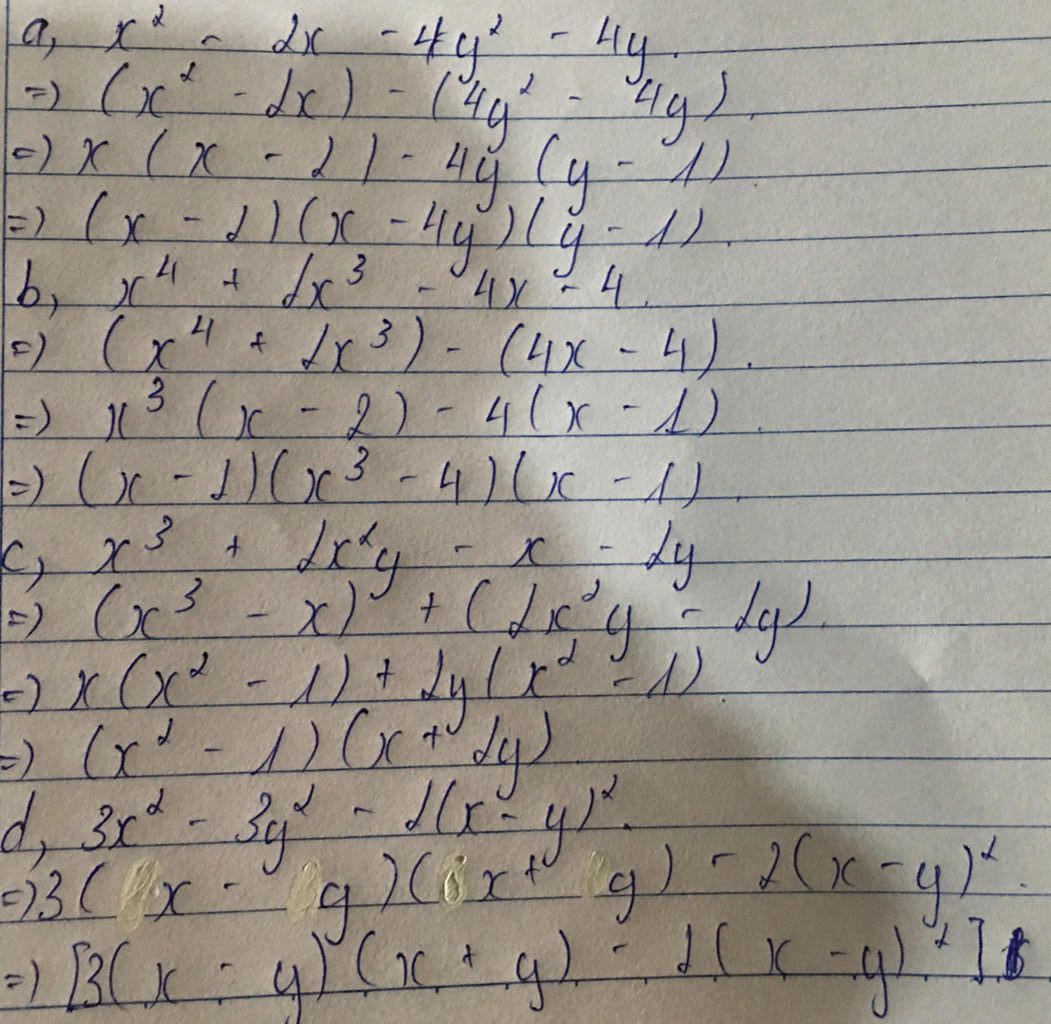 a, x² - 2x - 4y² - 4y.
=> (x² - 2x) - (4y² - 4y).
=> x (x - 2) - 4y (y - 1)
=> (x - 2)(x - 4y)(y - 1).
b, x⁴ + 2x³ - 4x - 4.
=> (x⁴ + 2x³) - (4x - 4).
=> x³ (x - 2) - 4(x - 1).
=> (x - 2)(x³ - 4)(x - 1).
c, x³ + 2x²y - x - 2y
=> (x³ - x) + (2x²y - 2y).
=> x(x² - 1) + 2y(x² - 1)
=> (x² - 1)(x + 2y)
d, 3x² - 3y² - 2(x - y)².
=> 3(x - y)(x + y) - 2(x - y)².
=> [3(x - y)(x + y) - 2(x - y)²]